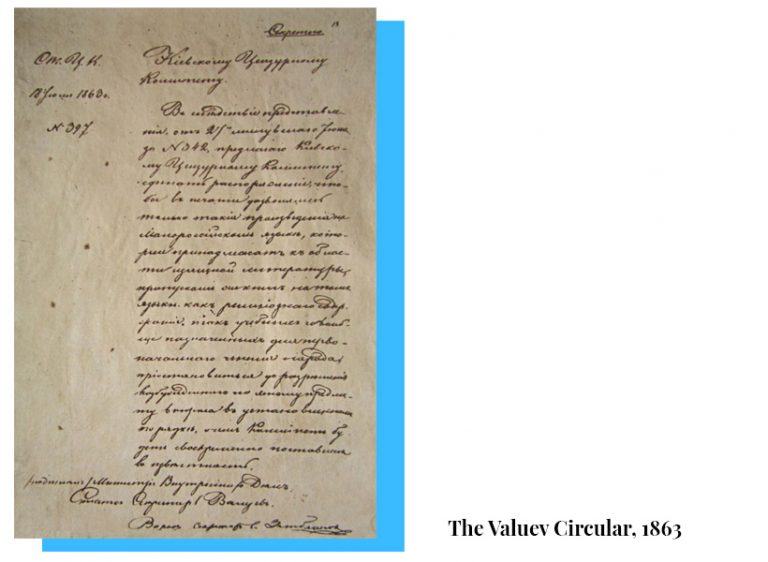 Секретно
От. Ц. К.
18 Июля 1863 г.
N 397
Кіевскому Цензурному
Комитету.
Въ слѣдствіе представле-
нія, отъ 27 минувшаго Іюня
за N 342, предлагаю Кіевско-
му Цензурному Комитету
сдѣлать распоряженіе, что-
бы въ печати дозволялись
только такія произведенія на
Малороссійскомъ языкѣ, кото-
рыя принадлежатъ къ облас-
ти изящной литературы;
пропускомъ же книгъ на томъ
языкѣ, какъ религіознаго содер-
жанія, такъ учебныхъ и вооб-
ще назначенныхъ для перво-
начальнаго чтенія народа,
пріостановиться до разрѣшенія
возбужденнаго по этому предме-
ту вопроса въ установленномъ
порядкѣ, о чемъ Комитетъ бу-
детъ своевременно поставленъ
въ извѣстность.
подписалъ: Министръ Внутреннихъ Дѣлъ,
Статсъ Секретарь Валуевъ.
The Valuev Circular, 1863